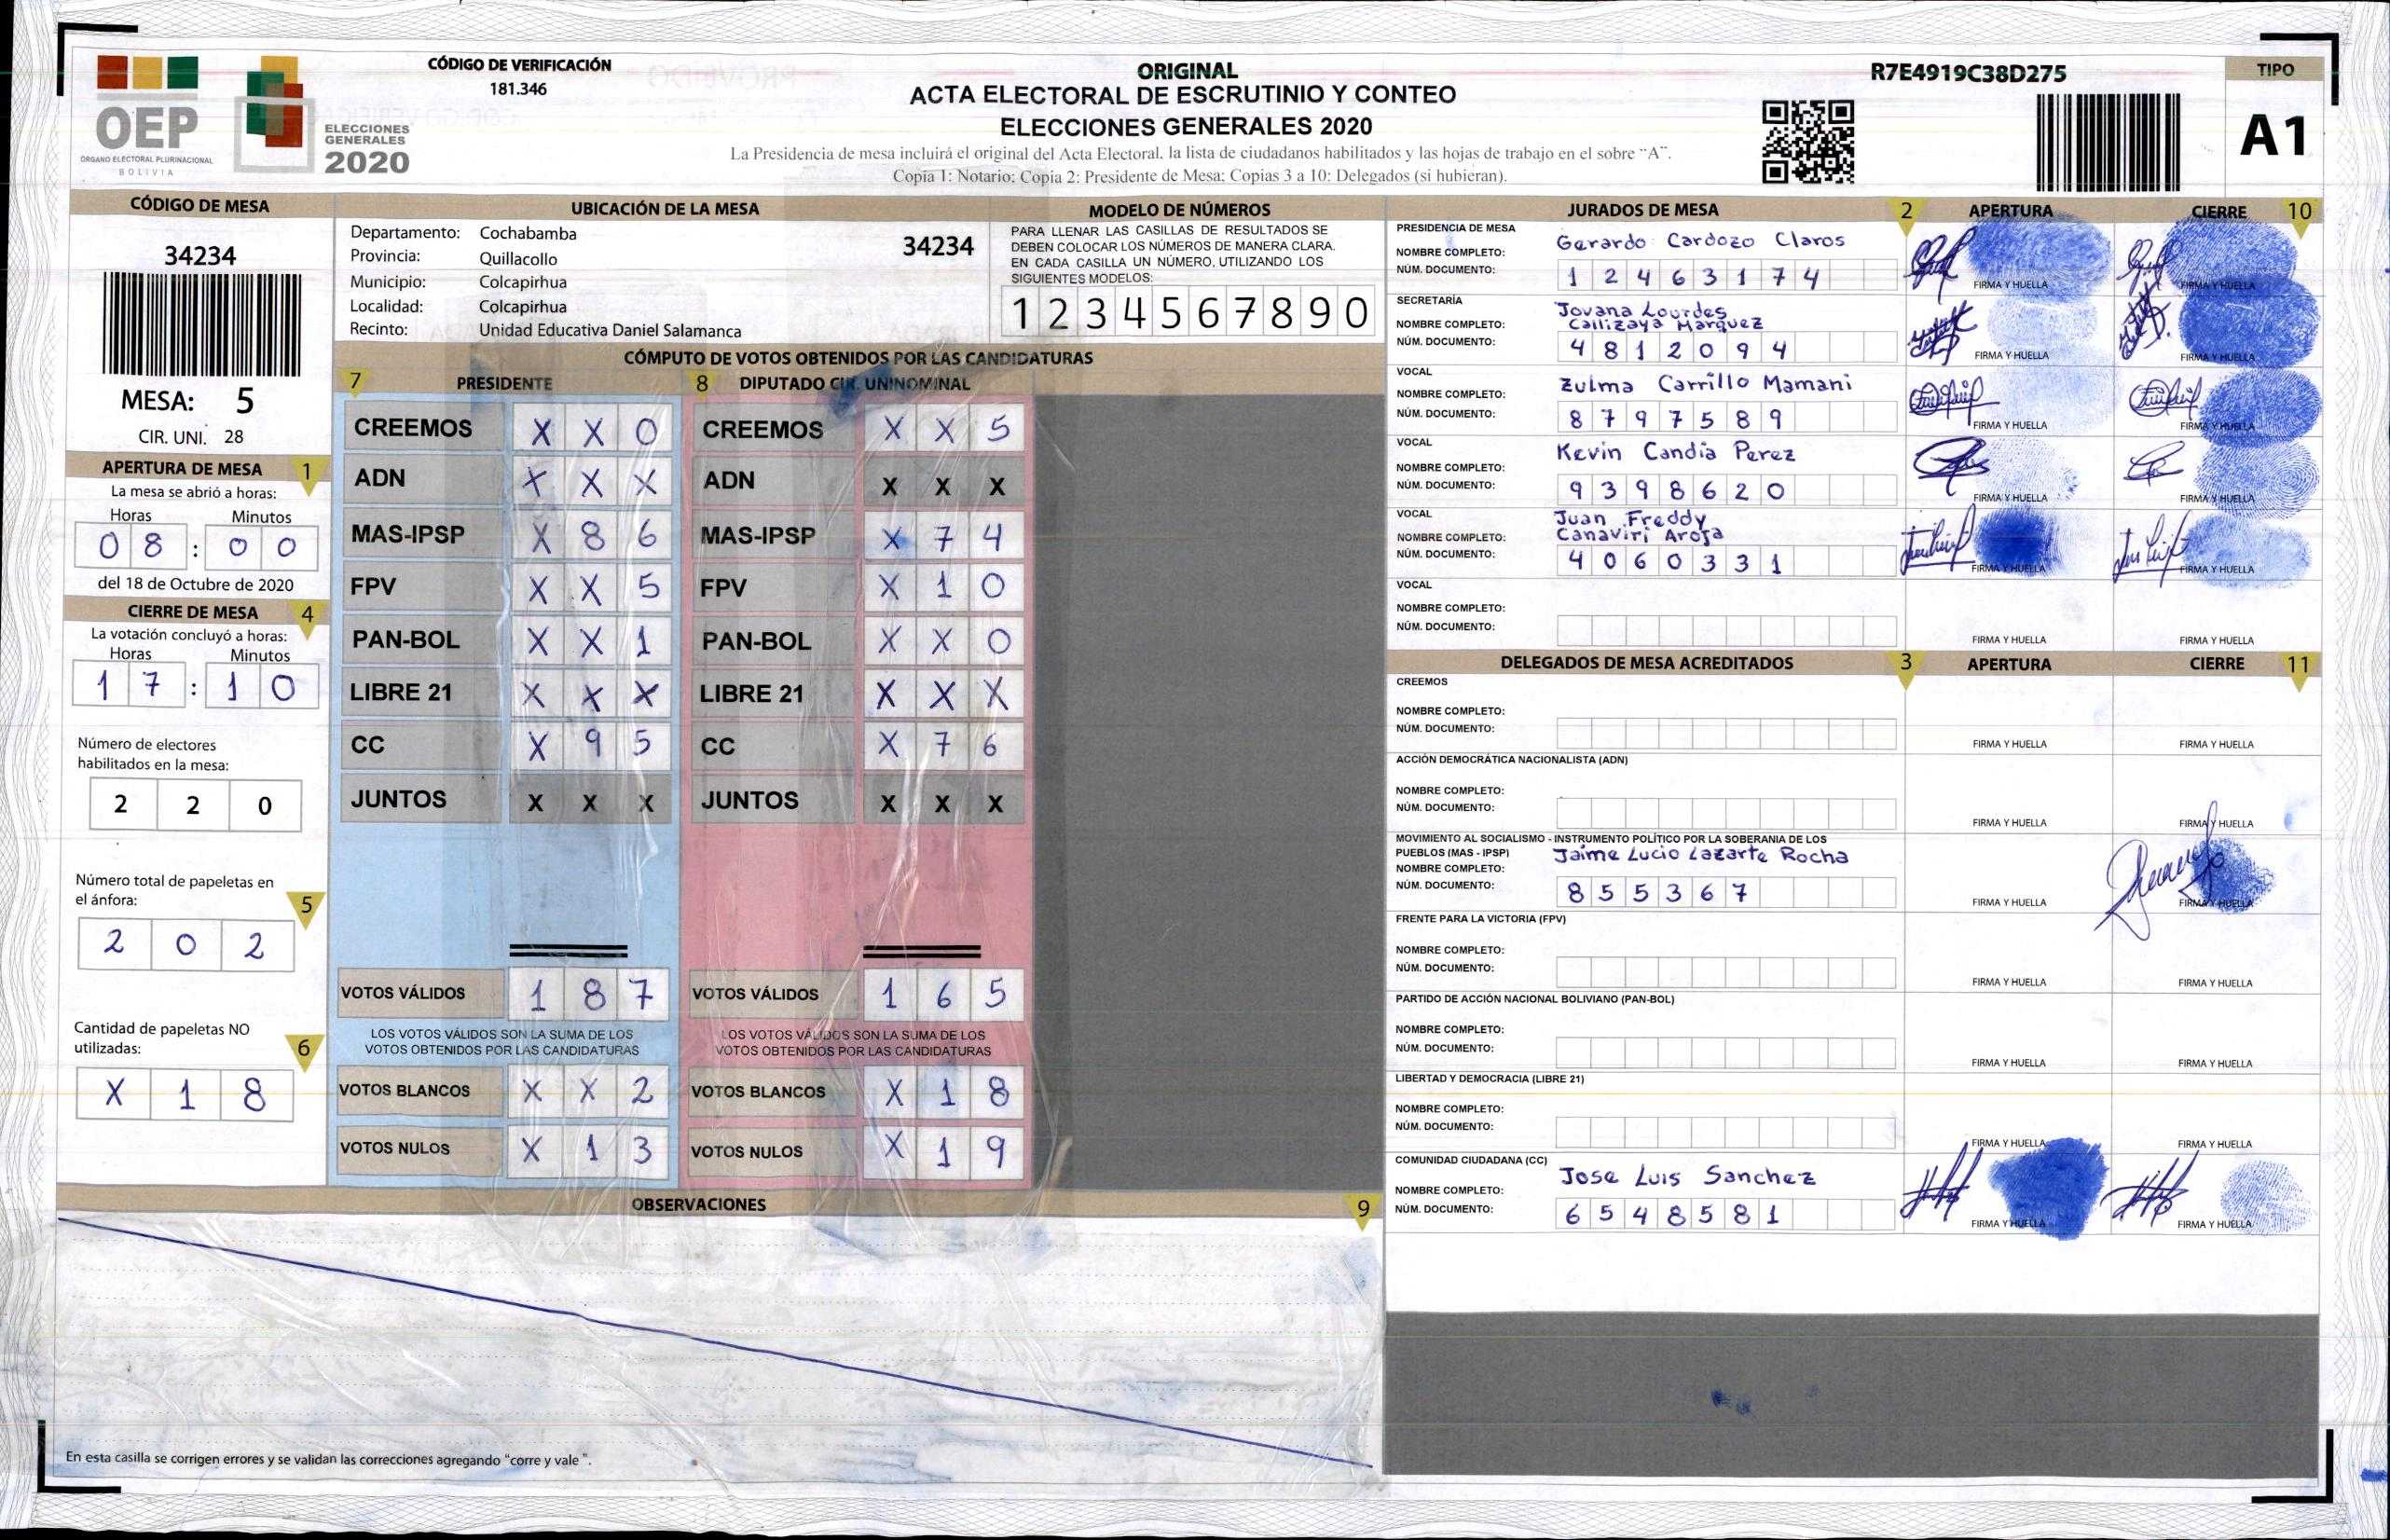 OEP
ÓRGANO ELECTORAL PLURINACIONAL
BOLIVIA
ELECCIONES
GENERALES
2020
CÓDIGO DE VERIFICACIÓN
181.346
ORIGINAL
ACTA ELECTORAL DE ESCRUTINIO Y CONTEO
ELECCIONES GENERALES 2020
La Presidencia de mesa incluirá el original del Acta Electoral, la lista de ciudadanos habilitados y las hojas de trabajo en el sobre "A".
Copia 1: Notario; Copia 2: Presidente de Mesa; Copias 3 a 10: Delegados (si hubieran).
R7E4919C38D275
TIPO
A1
CÓDIGO DE MESA
34234
MESA: 5
CIR. UNI. 28
APERTURA DE MESA 1
La mesa se abrió a horas:
Horas Minutos
0 8 : 0 0
del 18 de Octubre de 2020
CIERRE DE MESA 4
La votación concluyó a horas:
Horas Minutos
1 7 : 1 0
Número de electores
habilitados en la mesa:
2 2 0
Número total de papeletas en
el ánfora: 5
2 0 2
Cantidad de papeletas NO
utilizadas: 6
X 1 8
UBICACIÓN DE LA MESA
Departamento: Cochabamba 34234
Provincia: Quillacollo
Municipio: Colcapirhua
Localidad: Colcapirhua
Recinto: Unidad Educativa Daniel Salamanca
MODELO DE NÚMEROS
PARA LLENAR LAS CASILLAS DE RESULTADOS SE
DEBEN COLOCAR LOS NÚMEROS DE MANERA CLARA.
EN CADA CASILLA UN NÚMERO, UTILIZANDO LOS
SIGUIENTES MODELOS:
1 2 3 4 5 6 7 8 9 0
CÓMPUTO DE VOTOS OBTENIDOS POR LAS CANDIDATURAS
7 PRESIDENTE 8 DIPUTADO CIR. UNINOMINAL
CREEMOS X X 0 CREEMOS X X 5
ADN X X X ADN X X X
MAS-IPSP X 8 6 MAS-IPSP X 7 4
FPV X X 5 FPV X 1 0
PAN-BOL X X 1 PAN-BOL X X 0
LIBRE 21 X X X LIBRE 21 X X X
CC X 9 5 CC X 7 6
JUNTOS X X X JUNTOS X X X
VOTOS VÁLIDOS 1 8 7 VOTOS VÁLIDOS 1 6 5
LOS VOTOS VÁLIDOS SON LA SUMA DE LOS LOS VOTOS VÁLIDOS SON LA SUMA DE LOS
VOTOS OBTENIDOS POR LAS CANDIDATURAS VOTOS OBTENIDOS POR LAS CANDIDATURAS
VOTOS BLANCOS X X 2 VOTOS BLANCOS X 1 8
VOTOS NULOS X 1 3 VOTOS NULOS X 1 9
OBSERVACIONES 9
En esta casilla se corrigen errores y se validan las correcciones agregando "corre y vale".
JURADOS DE MESA 2 APERTURA CIERRE 10
PRESIDENCIA DE MESA
NOMBRE COMPLETO: Gerardo Cardozo Claros
NÚM. DOCUMENTO: 1 2 4 6 3 1 7 4 FIRMA Y HUELLA FIRMA Y HUELLA
SECRETARÍA
NOMBRE COMPLETO: Jovana Lourdes
Callizaya Marquez
NÚM. DOCUMENTO: 4 8 1 2 0 9 4 FIRMA Y HUELLA FIRMA Y HUELLA
VOCAL
NOMBRE COMPLETO: Zulma Carrillo Mamani
NÚM. DOCUMENTO: 8 7 9 7 5 8 9 FIRMA Y HUELLA FIRMA Y HUELLA
VOCAL
NOMBRE COMPLETO: Kevin Candia Perez
NÚM. DOCUMENTO: 9 3 9 8 6 2 0 FIRMA Y HUELLA FIRMA Y HUELLA
VOCAL
NOMBRE COMPLETO: Juan Freddy
Canaviri
NÚM. DOCUMENTO: 4 0 6 0 3 3 1 FIRMA Y HUELLA FIRMA Y HUELLA
VOCAL
NOMBRE COMPLETO:
NÚM. DOCUMENTO: FIRMA Y HUELLA FIRMA Y HUELLA
DELEGADOS DE MESA ACREDITADOS 3 APERTURA CIERRE 11
CREEMOS
NOMBRE COMPLETO:
NÚM. DOCUMENTO: FIRMA Y HUELLA FIRMA Y HUELLA
ACCIÓN DEMOCRÁTICA NACIONALISTA (ADN)
NOMBRE COMPLETO:
NÚM. DOCUMENTO: FIRMA Y HUELLA FIRMA Y HUELLA
MOVIMIENTO AL SOCIALISMO - INSTRUMENTO POLÍTICO POR LA SOBERANIA DE LOS
PUEBLOS (MAS - IPSP) Jaime Lucio Lazarte Rocha
NOMBRE COMPLETO:
NÚM. DOCUMENTO: 8 5 5 3 6 7 FIRMA Y HUELLA FIRMA Y HUELLA
FRENTE PARA LA VICTORIA (FPV)
NOMBRE COMPLETO:
NÚM. DOCUMENTO: FIRMA Y HUELLA FIRMA Y HUELLA
PARTIDO DE ACCIÓN NACIONAL BOLIVIANO (PAN-BOL)
NOMBRE COMPLETO:
NÚM. DOCUMENTO: FIRMA Y HUELLA FIRMA Y HUELLA
LIBERTAD Y DEMOCRACIA (LIBRE 21)
NOMBRE COMPLETO:
NÚM. DOCUMENTO: FIRMA Y HUELLA FIRMA Y HUELLA
COMUNIDAD CIUDADANA (CC)
NOMBRE COMPLETO: Jose Luis Sanchez
NÚM. DOCUMENTO: 6 5 4 8 5 8 1 FIRMA Y HUELLA FIRMA Y HUELLA